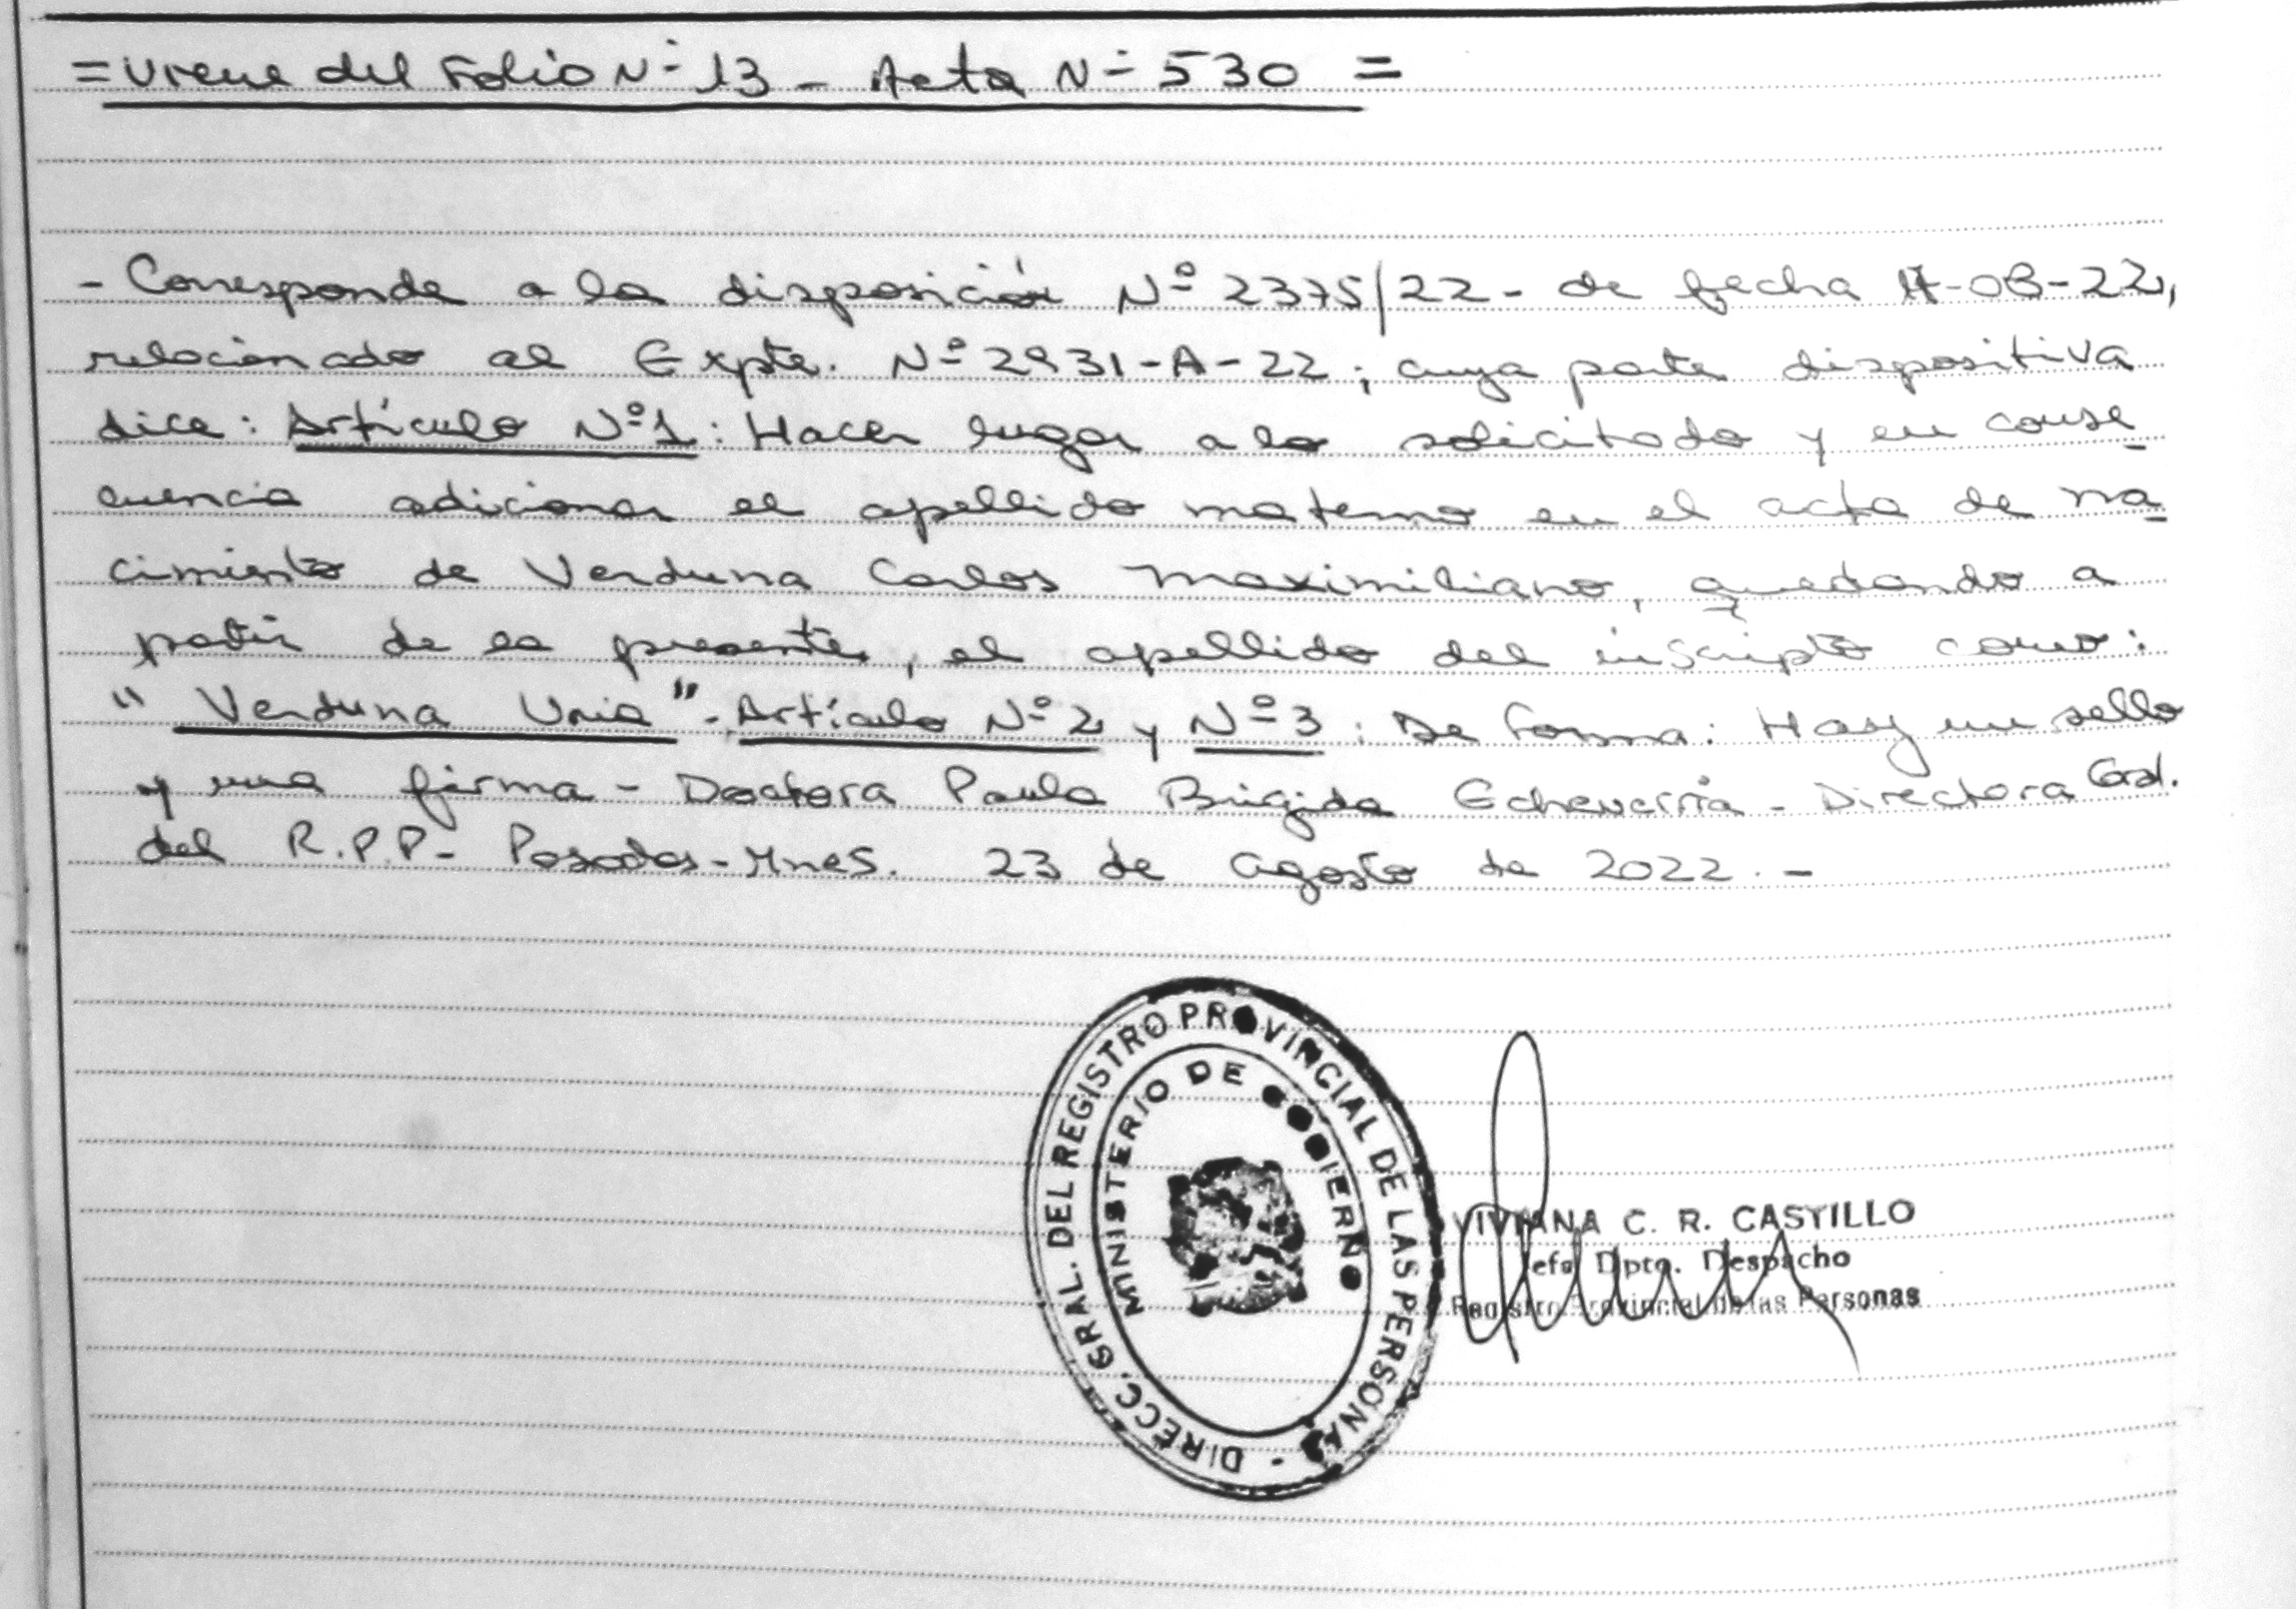 = Viene del Folio Nº 13 - Acta Nº 530 =
- Corresponde a la disposición Nº 2375/22 - de fecha 17-08-22,
relacionado al Expte. Nº 2931-A-22; cuya parte dispositiva
dice: Artículo Nº1: Hacer lugar a lo solicitado y en conse
cuencia adicionar el apellido materno en el acta de na
cimiento de Verduna Carlos Maximiliano, quedando a
partir de la presente, el apellido del inscripto como:
"Verduna Uria". Artículo Nº 2 y Nº 3: De forma: Hay un sello
y una firma - Doctora Paula Brigida Echeverría - Directora Gral.
del R.P.P - Posadas - Mnes. 23 de agosto de 2022. -
DIRECC. GRAL. DEL REGISTRO PROVINCIAL DE LAS PERSONAS -
MINISTERIO DE GOBIERNO
VIVIANA C. R. CASTILLO
Jefa Dpto. Despacho
Registro Provincial de las Personas